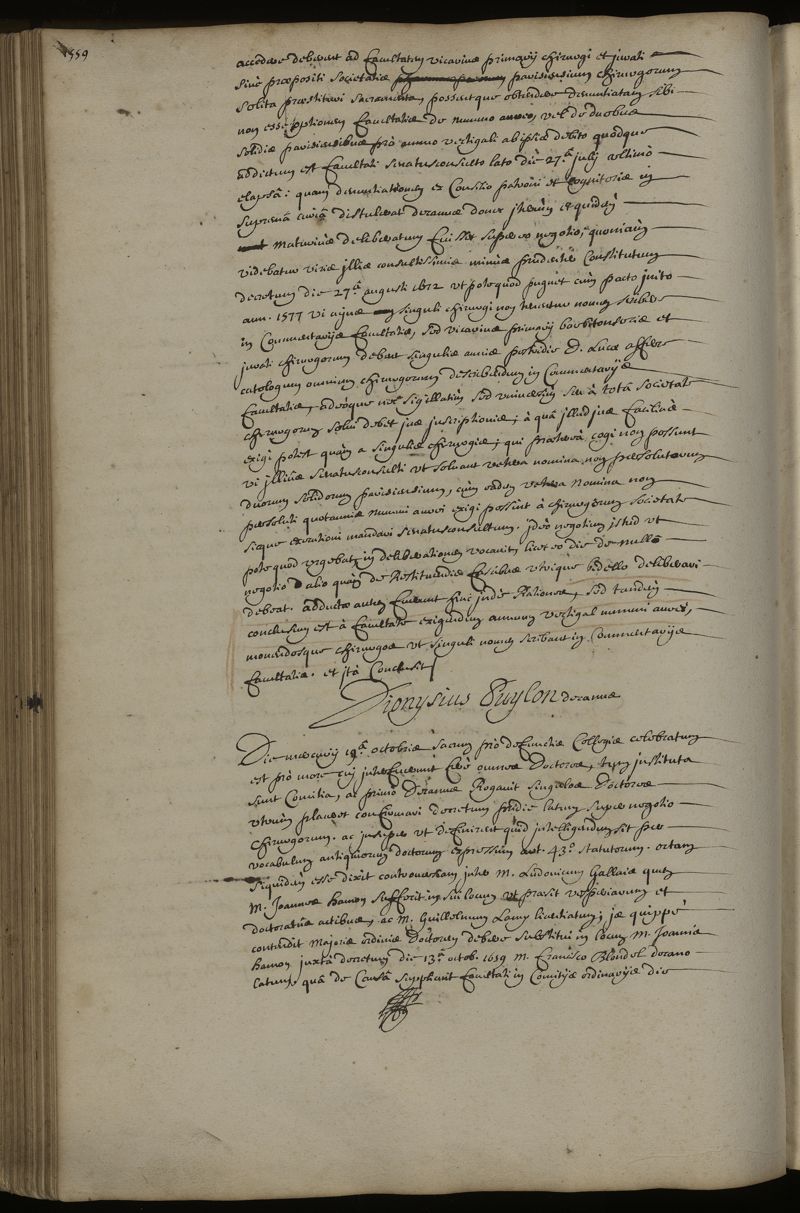 1559
accedere debeant ad Facultatem vicarius primarij chirurgi et jurati
sive præpositi Societatis parisiensium chirurgorum
solita præstituri Sacramenta, possentque obtendere denuntiatam sibi
non esse optionem Facultatis de nummo aureo, vel de duobus
solidis parisiensibus pro annuo vectigali ab ipsis debito quodque
addictum est Facultati senatusconsulto lato die 27ª julij ultimò
elapsâ: quam denuntiationem ex Consilio patroni et cognitoris in
supremâ curiâ distulerat decanus donec iterùm et quidem
maturius deliberatum fuisset super eo negotio, quoniam
videbatur viris illis consultissimis minus prudenter Constitutum
decretum die 27ª augusti 1672 utpote quod pugnet cum pacto inito
ann. 1577 vi cujus singuli chirurgi non tenentur nomen scribere
in Commentarijs Facultatis, sed vicarius primarij barbitonsoris et
jurati chirurgorum debent singulis annis postridie D. Lucæ afferre
catalogum omnium chirurgorum describendum in Commentarijs
Facultatis, adeòque nec sigillatim sed universim seu à totâ Societate
chirurgorum solui debet jus inscriptionis, à quâ illud jus faciliùs
exigi potest quàm a singulis chirurgis; qui præterea cogi non possunt
vi illius senatusconsulti ut soluant vetera nomina non persolutorum
duorum solidorum parisiensium, cùm eadem vetera nomina non
persoluti quotannis nummi aurei exigi possint à chirurgorum societate
sicque executioni mandari senatusconsultum. ideo negotium istud ut
pote quod urgebat in deliberationem vocavit, licet eo die de nullo
negotio alio quàm de Restituendis fascibus utrique bedello deliberari
debeat. adductæ autem fuerunt hinc inde Rationes, sed tandem
conclusum est à Facultate exigendum annuum vectigal nummi aurei,
monendosque chirurgos ut singuli nomen scribant in Commentarijs
Facultatis. et ità Conclusit
Dionysius Puylon decanus
Die mercurij 19ª octobris sacrum pro defunctis Collegis celebratum
est pro more cui interfuerunt ferè omnes Doctores, tum instituta
sunt Comitia, ac primò Decanus Rogavit singulos Doctores
utrùm placeat confirmari decretum pridie latum super negotio
chirurgorum. ac insuper ut definirent quid intelligendum sit per
vocabulum antiquiorum doctorum expressum art. 43º. statutorum. ortam
siquidem esse dixit controversiam inter M. Ludovicum Gallais quem
M. Joannes hamon suffecit in sui locum ut præsit vesperiarum et
doctoratus actibus, ac M. Guillelmum Lamy licentiatum; is quippe
contendit majoris ordinis Doctorem debere substitui in locum M. Joannis
hamon juxtà decretum die 13ª octob. 1659 M. Francisco Blondel decano
latum, quâ de Causâ supplicavit Facultati in Comitijs ordinarijs die